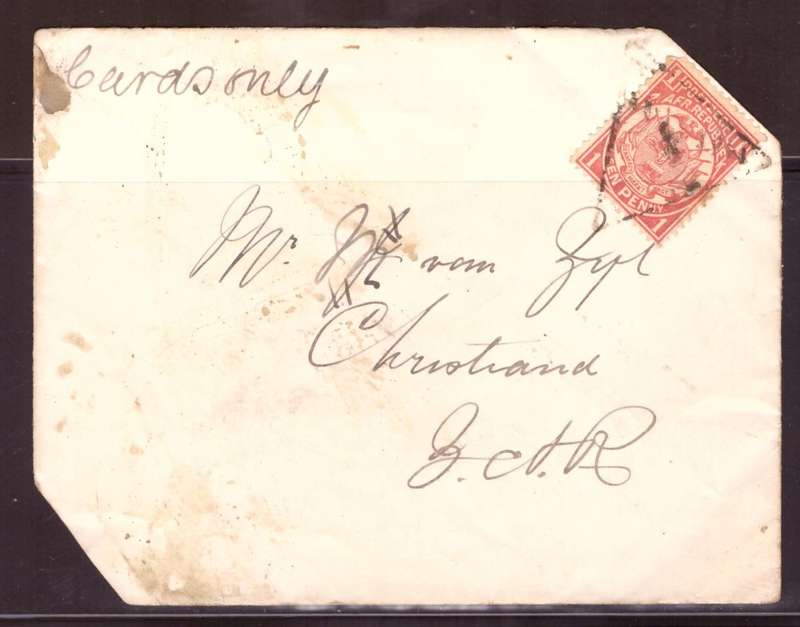 Cards only
AFR. REPUBLIEK
EEN PENNY
1
1
Mr van Zyl
Christiana
Z.A.R